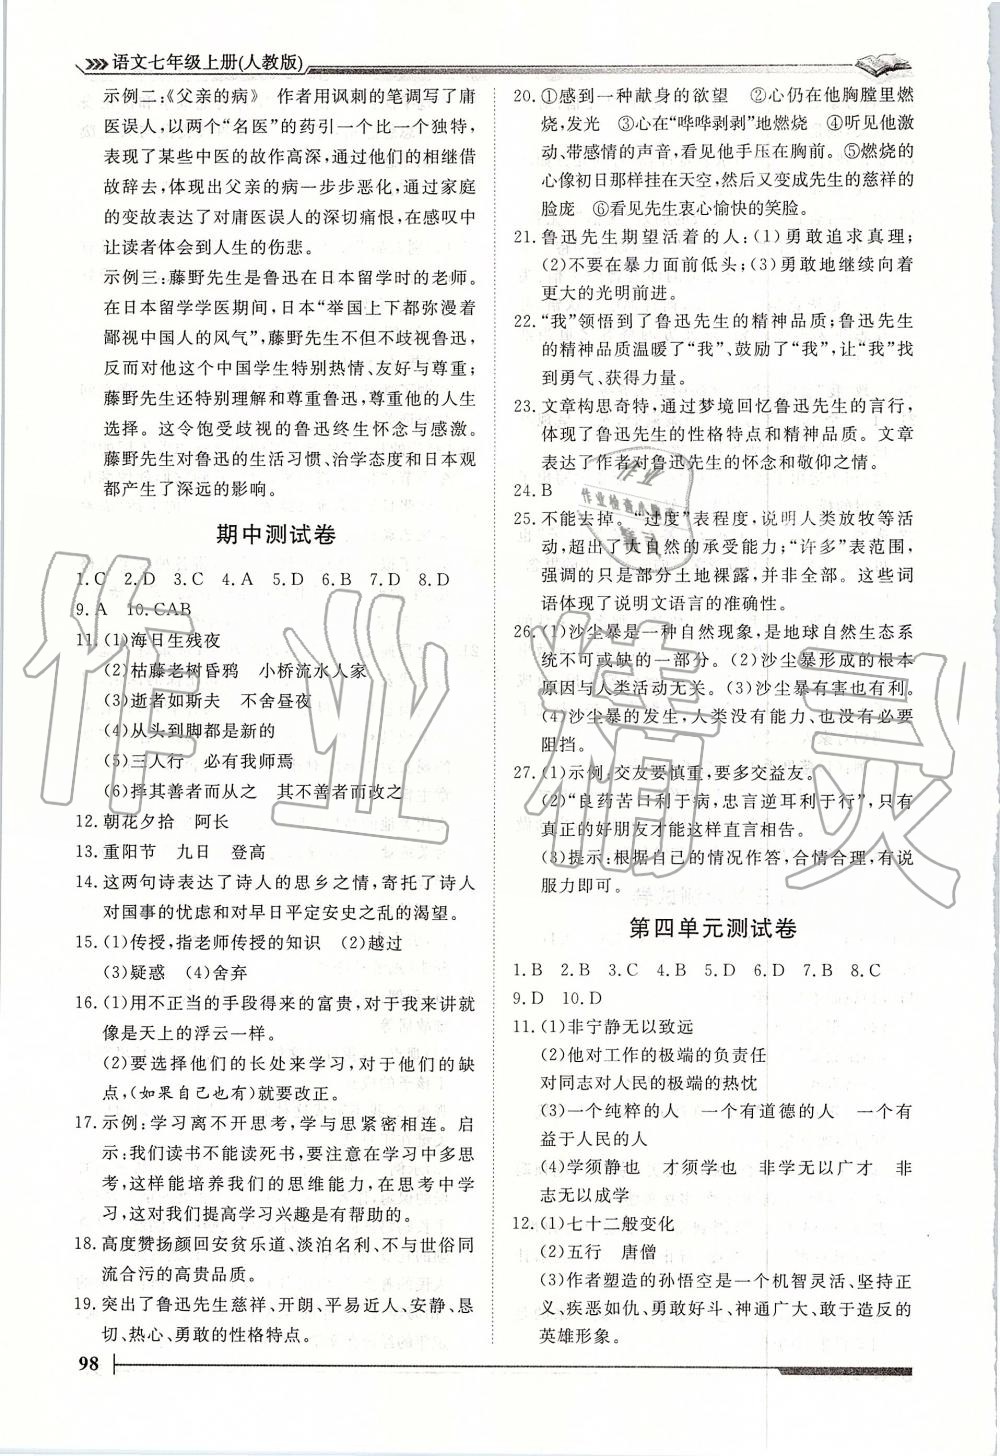 语文七年级上册(人教版)
示例二:《父亲的病》 作者用讽刺的笔调写了庸
医误人,以两个“名医”的药引一个比一个独特,
表现了某些中医的故作高深,通过他们的相继借
故辞去,体现出父亲的病一步步恶化,通过家庭
的变故表达了对庸医误人的深切痛恨,在感叹中
让读者体会到人生的伤悲。
示例三:藤野先生是鲁迅在日本留学时的老师。
在日本留学学医期间,日本“举国上下都弥漫着
鄙视中国人的风气”,藤野先生不但不歧视鲁迅,
反而对他这个中国学生特别热情、友好与尊重;
藤野先生还特别理解和尊重鲁迅,尊重他的人生
选择。这令饱受歧视的鲁迅终生怀念与感激。
藤野先生对鲁迅的生活习惯、治学态度和日本观
都产生了深远的影响。
期中测试卷
1.C 2.D 3.C 4.A 5.D 6.B 7.D 8.D
9.A 10.CAB
11.(1)海日生残夜
(2)枯藤老树昏鸦 小桥流水人家
(3)逝者如斯夫 不舍昼夜
(4)从头到脚都是新的
(5)三人行 必有我师焉
(6)择其善者而从之 其不善者而改之
12.朝花夕拾 阿长
13.重阳节 九日 登高
14.这两句诗表达了诗人的思乡之情,寄托了诗人
对国事的忧虑和对早日平定安史之乱的渴望。
15.(1)传授,指老师传授的知识 (2)越过
(3)疑惑 (4)舍弃
16.(1)用不正当的手段得来的富贵,对于我来讲就
像是天上的浮云一样。
(2)要选择他们的长处来学习,对于他们的缺
点,(如果自己也有)就要改正。
17.示例:学习离不开思考,学与思紧密相连。启
示:我们读书不能读死书,要注意在学习中多思
考,这样能培养我们的思维能力,在思考中学
习,这对我们提高学习兴趣是有帮助的。
18.高度赞扬颜回安贫乐道、淡泊名利、不与世俗同
流合污的高贵品质。
19.突出了鲁迅先生慈祥、开朗、平易近人、安静、恳
切、热心、勇敢的性格特点。
20.①感到一种献身的欲望 ②心仍在他胸膛里燃
烧,发光 ③心在“哗哗剥剥”地燃烧 ④听见他激
动、带感情的声音,看见他手压在胸前。⑤燃烧的
心像初日那样挂在天空,然后又变成先生的慈祥的
脸庞 ⑥看见先生衷心愉快的笑脸。
21.鲁迅先生期望活着的人:(1)勇敢追求真理;
(2)不要在暴力面前低头;(3)勇敢地继续向着
更大的光明前进。
22.“我”领悟到了鲁迅先生的精神品质;鲁迅先生
的精神品质温暖了“我”、鼓励了“我”,让“我”找
到勇气、获得力量。
23.文章构思奇特,通过梦境回忆鲁迅先生的言行,
体现了鲁迅先生的性格特点和精神品质。文章
表达了作者对鲁迅先生的怀念和敬仰之情。
24.B
25.不能去掉。“过度”表程度,说明人类放牧等活
动,超出了大自然的承受能力;“许多”表范围,
强调的只是部分土地裸露,并非全部。这些词
语体现了说明文语言的准确性。
26.(1)沙尘暴是一种自然现象,是地球自然生态系
统不可或缺的一部分。(2)沙尘暴形成的根本
原因与人类活动无关。(3)沙尘暴有害也有利。
(4)沙尘暴的发生,人类没有能力、也没有必要
阻挡。
27.(1)示例:交友要慎重,要多交益友。
(2)“良药苦口利于病,忠言逆耳利于行”,只有
真正的好朋友才能这样直言相告。
(3)提示:根据自己的情况作答,合情合理,有说
服力即可。
第四单元测试卷
1.B 2.B 3.C 4.D 5.D 6.D 7.B 8.C
9.D 10.D
11.(1)非宁静无以致远
(2)他对工作的极端的负责任
对同志对人民的极端的热忱
(3)一个纯粹的人 一个有道德的人 一个有
益于人民的人
(4)学须静也 才须学也 非学无以广才 非
志无以成学
12.(1)七十二般变化
(2)五行 唐僧
(3)作者塑造的孙悟空是一个机智灵活、坚持正
义、疾恶如仇、勇敢好斗、神通广大、敢于造反的
英雄形象。
98
作业精灵